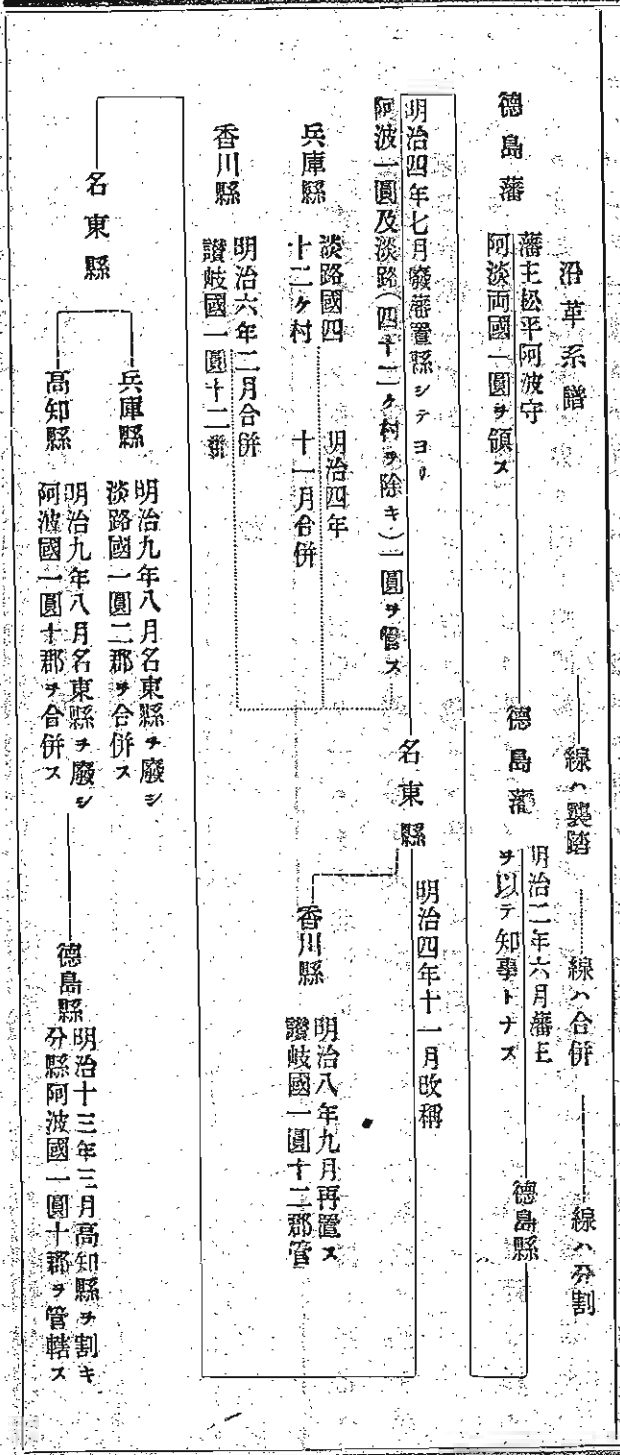 沿革系譜
線ハ襲踏
線ハ合併
線ハ分割
德島藩
藩主松平阿波守
阿淡両國一圓ヲ領ス
德島藩
明治二年六月藩主
ヲ以テ知事トナス
德島縣
明治四年七月廢藩置縣シテヨリ
阿波一圓及淡路(四十二ケ村ヲ除キ)一圓ヲ管ス
名東縣
明治四年十一月改稱
兵庫縣
淡路國四
十二ケ村
明治四年
十一月合併
香川縣
明治八年九月再置ス
讃岐國一圓十二郡管
香川縣
明治六年二月合併
讃岐國一圓十二郡
名東縣
兵庫縣
明治九年八月名東縣ヲ廢シ
淡路國一圓二郡ヲ合併ス
高知縣
明治九年八月名東縣ヲ廢シ
阿波國一圓十郡ヲ合併ス
德島縣
明治十三年三月高知縣ヲ割キ
分縣阿波國一圓十郡ヲ管轄ス